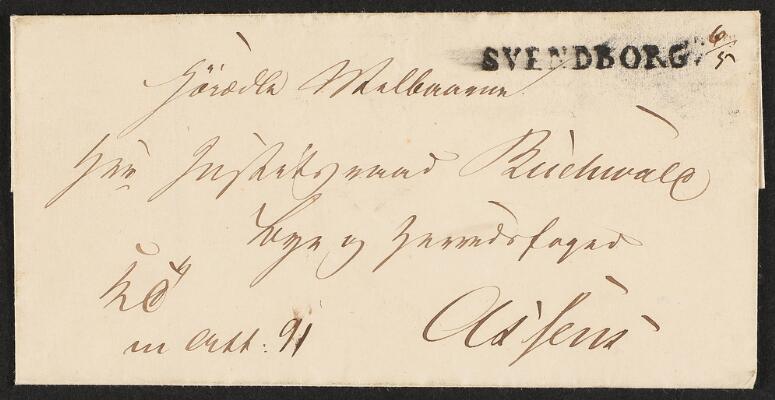 SVENDBORG. 6/5
Höiædle Welbaarne
Hrr Justitsraad Buchwald
Bye og Herredsfoged
Assens
m Att: 91